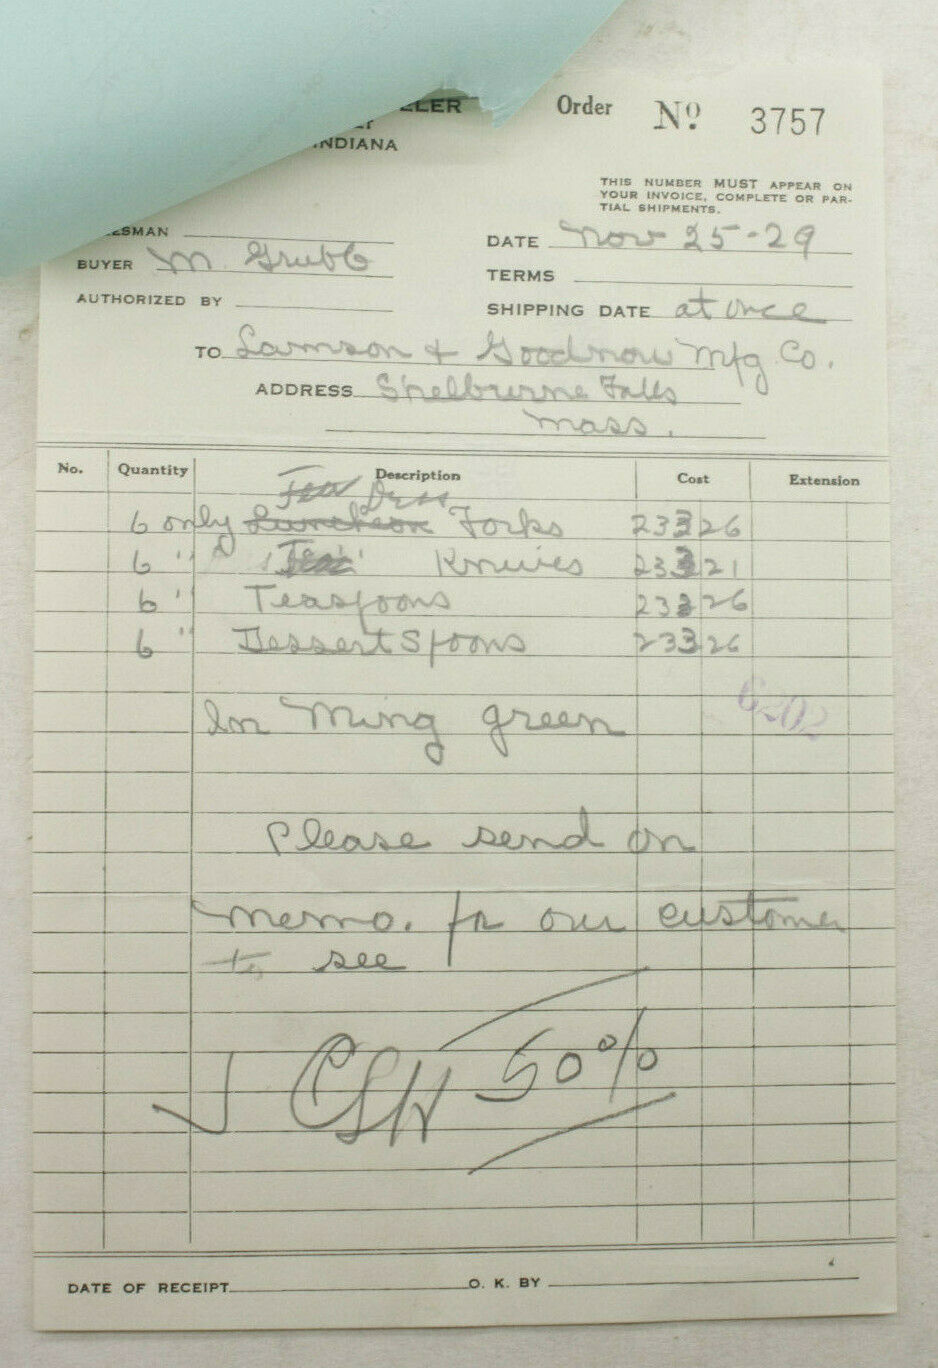 LLER
INDIANA
Order No 3757
THIS NUMBER MUST APPEAR ON
YOUR INVOICE, COMPLETE OR PAR-
TIAL SHIPMENTS.
ESMAN
DATE Nov 25-29
BUYER M. Grubb
TERMS
AUTHORIZED BY
SHIPPING DATE at once
TO Lamson & Goodnow Mfg Co.
ADDRESS Shelburne Falls
Mass.
No. Quantity Description Cost Extension
Tea Dess
6 only Luncheon Forks 233 26
6 " Tea Knives 233 21
6 " Teaspoons 233 26
6 " Dessert Spoons 233 26
6202
In Ming green
Please send on
memo. for our customer
to see
CSH 50%
DATE OF RECEIPT O. K. BY